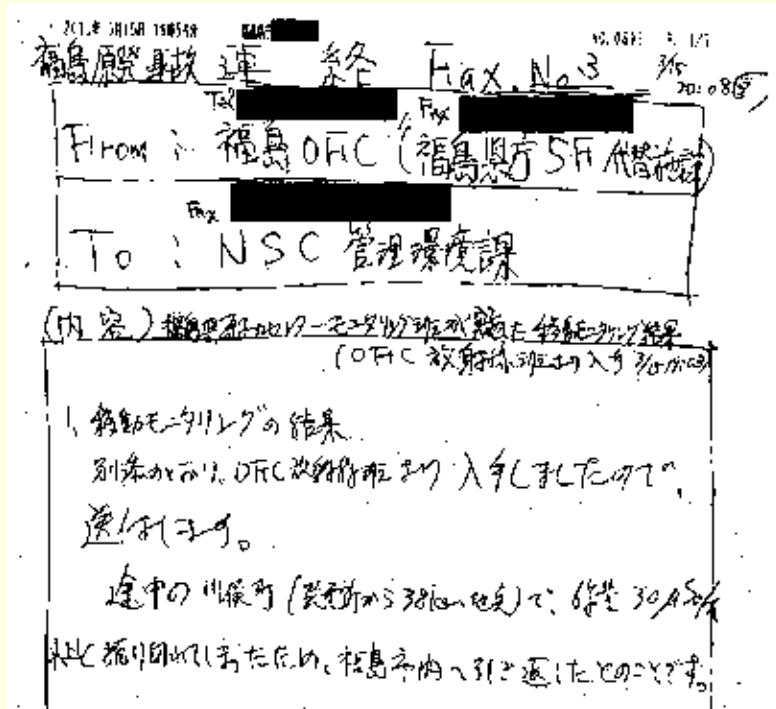 福島原発事故 連絡 Fax. No3 3/15
20:08
Tel Fax
From : 福島OFC (福島県庁5F 代替施設)
Fax
To : NSC 管理環境課
(内容) 福島県原子力センターモニタリング班が実施した移動モニタリング結果
(OFC 放射線班より入手
1、移動モニタリングの結果
別添のとおり、OFC放射線班より入手しましたので、
送付します。
途中の川俣町(発電所から38km地点)で、線量30μSv/h
以上で振り切れてしまったため、福島市内へ引き返したとのことです。